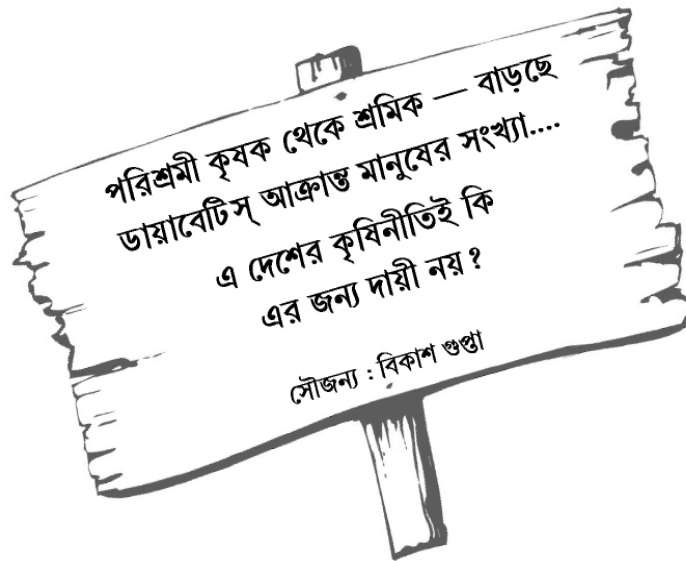 পরিশ্রমী কৃষক থেকে শ্রমিক — বাড়ছে
ডায়াবেটিস্ আক্রান্ত মানুষের সংখ্যা....
এ দেশের কৃষিনীতিই কি
এর জন্য দায়ী নয়?
সৌজন্য : বিকাশ গুপ্তা